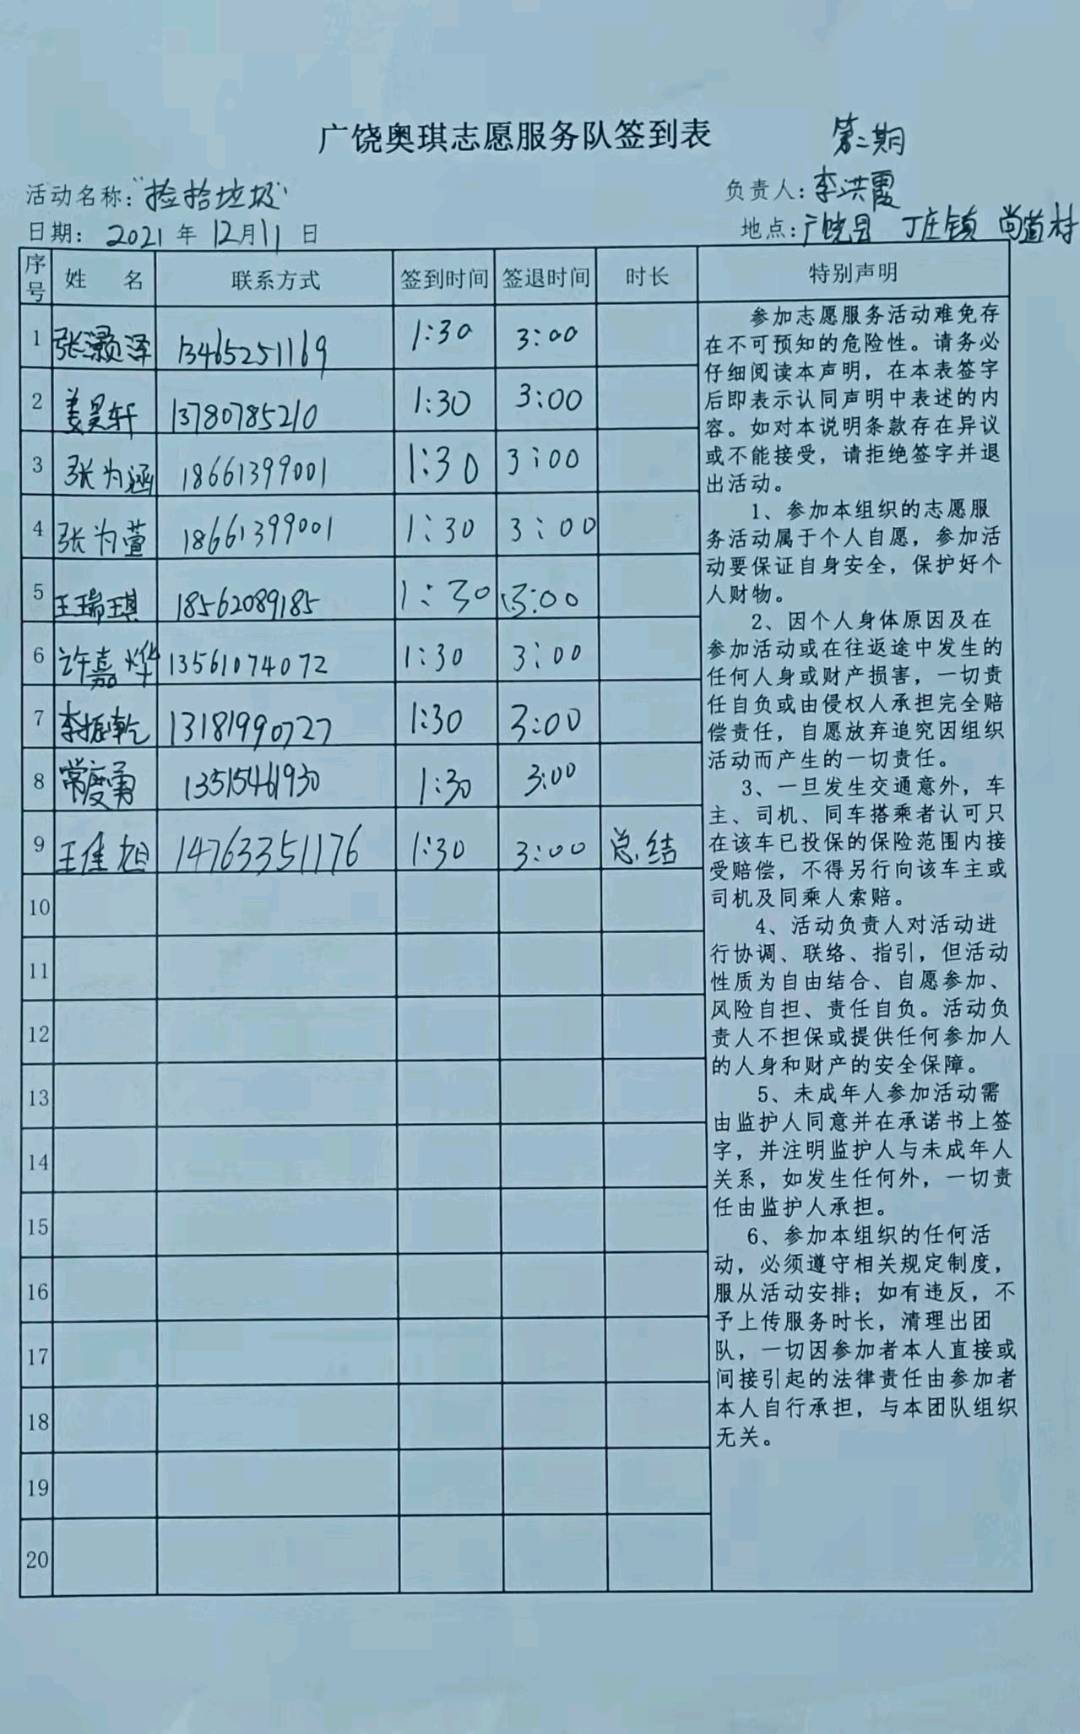 广饶奥琪志愿服务队签到表 第二期
活动名称:"捡拾垃圾" 负责人:李洪霞
日期: 2021 年 12月11 日 地点:广饶县 丁庄镇 尚道村
序号 姓 名 联系方式 签到时间 签退时间 时长 特别声明
1 张灏泽 13465251169 1:30 3:00
2 姜昊轩 13780785210 1:30 3:00
3 张为涵 18661399001 1:30 3:00
4 张为萱 18661399001 1:30 3:00
5 王瑞琪 18562089185 1:30 3:00
6 许嘉烨 13561074072 1:30 3:00
7 李振乾 13181990727 1:30 3:00
8 常庆勇 13515461930 1:30 3:00
9 王佳旭 14763351176 1:30 3:00 总结
10
11
12
13
14
15
16
17
18
19
20
参加志愿服务活动难免存
在不可预知的危险性。请务必
仔细阅读本声明，在本表签字
后即表示认同声明中表述的内
容。如对本说明条款存在异议
或不能接受，请拒绝签字并退
出活动。
1、参加本组织的志愿服
务活动属于个人自愿，参加活
动要保证自身安全，保护好个
人财物。
2、因个人身体原因及在
参加活动或在往返途中发生的
任何人身或财产损害，一切责
任自负或由侵权人承担完全赔
偿责任，自愿放弃追究因组织
活动而产生的一切责任。
3、一旦发生交通意外，车
主、司机、同车搭乘者认可只
在该车已投保的保险范围内接
受赔偿，不得另行向该车主或
司机及同乘人索赔。
4、活动负责人对活动进
行协调、联络、指引，但活动
性质为自由结合、自愿参加、
风险自担、责任自负。活动负
责人不担保或提供任何参加人
的人身和财产的安全保障。
5、未成年人参加活动需
由监护人同意并在承诺书上签
字，并注明监护人与未成年人
关系，如发生任何外，一切责
任由监护人承担。
6、参加本组织的任何活
动，必须遵守相关规定制度，
服从活动安排；如有违反，不
予上传服务时长，清理出团
队，一切因参加者本人直接或
间接引起的法律责任由参加者
本人自行承担，与本团队组织
无关。